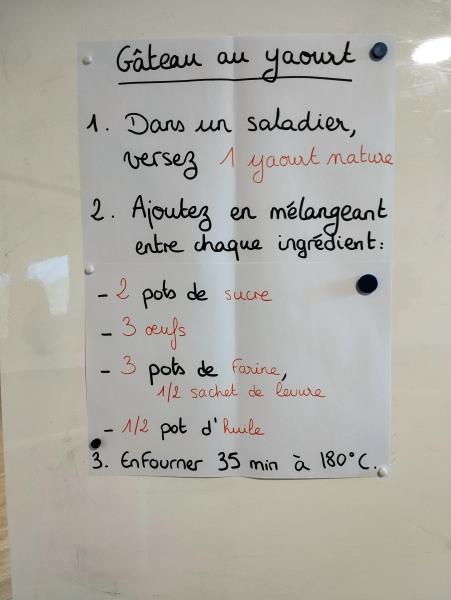 Gâteau au yaourt
1. Dans un saladier,
versez 1 yaourt nature
2. Ajoutez en mélangeant
entre chaque ingrédient :
- 2 pots de sucre
- 3 œufs
- 3 pots de farine,
1/2 sachet de levure
- 1/2 pot d'huile
3. Enfourner 35 min à 180°C.